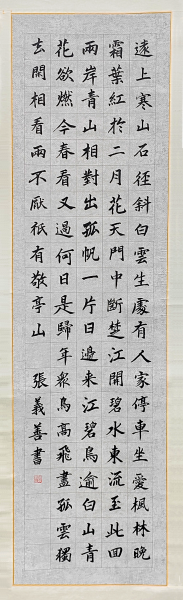 遠上寒山石徑斜白雲生處有人家停車坐愛楓林晚
霜葉紅於二月花天門中斷楚江開碧水東流至此回
兩岸青山相對出孤帆一片日邊來江碧鳥逾白山青
花欲燃今春看又過何日是歸年衆鳥高飛盡孤雲獨
去閑相看兩不厭祇有敬亭山 張義善書